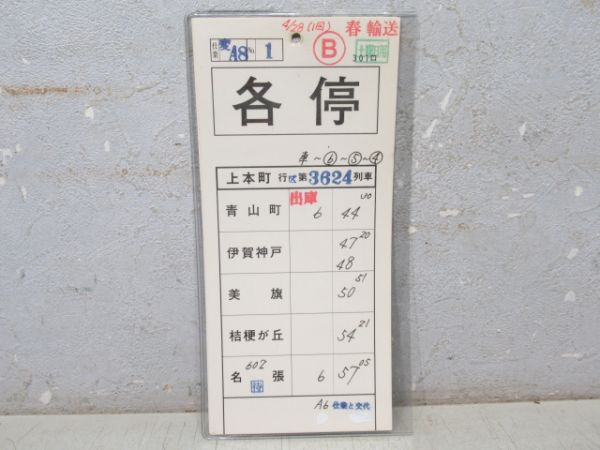 4/28(1回) 春輸送
仕業 変A8 No. 1 B 土曜日用
301ロ
各停
車〜⑥〜⑤〜④
上本町 行 区 第 3624 列車
出庫
青山町 6 44 00
伊賀神戸 47 20
48
美旗 50 51
桔梗が丘 54 21
名張 602 待 6 57 05
A6 仕業と交代